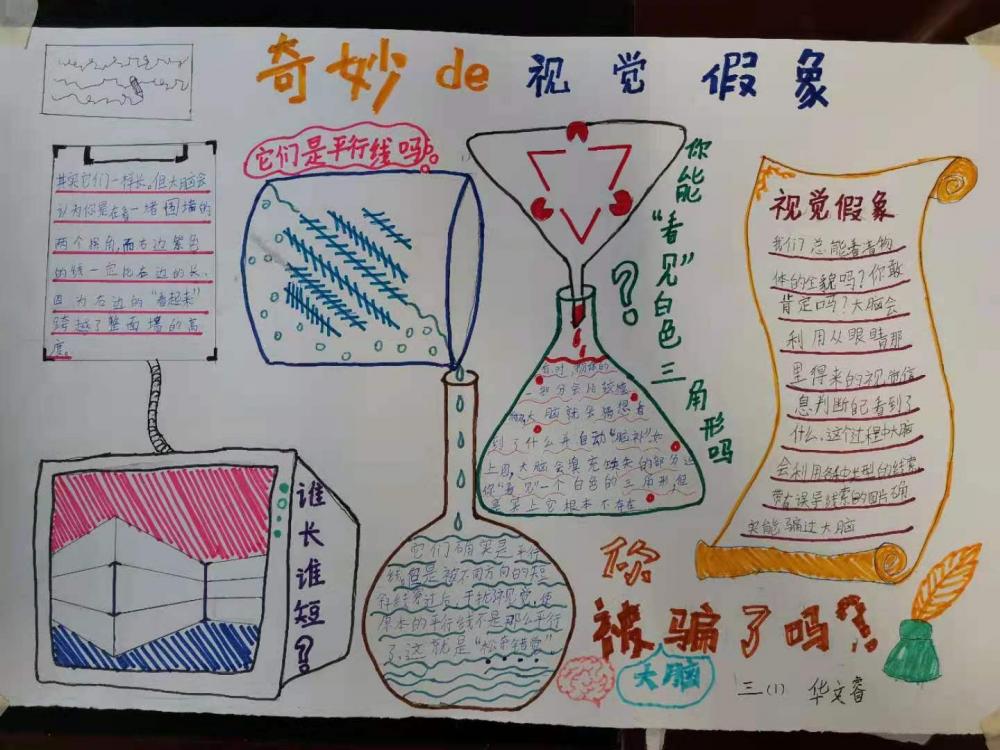 奇妙de视觉假象
其实它们一样长。但大脑会
认为你是在看一堵围墙的
两个拐角,而右边紫色
的线一定比左边的长、
因为右边的“看起来”
跨越了整面墙的高
度。
它们是平行线吗?
你能“看见”白色三角形吗?
有时,物体的
一部分会比较
大脑就会猜想看
到了什么并自动“脑补”如
上图,大脑会填充缺失的部分让
你“看见”一个白色的三角形,但
事实上它根本不存在
视觉假象
我们总能看清物
体的全貌吗?你敢
肯定吗?大脑会
利用从眼睛那
里得来的视觉信
息判断自己看到了
什么、这个过程中大脑
会利用各种类型的线索
带有误导线索的图片确
实能骗过大脑
谁长谁短?
它们确实是平行
线,但是被不同方向的短
斜线穿过后,干扰视觉,使
原本的平行线不是那么平行
了、这就是“松奈错觉”
你
被骗了吗?
大脑
三(1) 华文睿